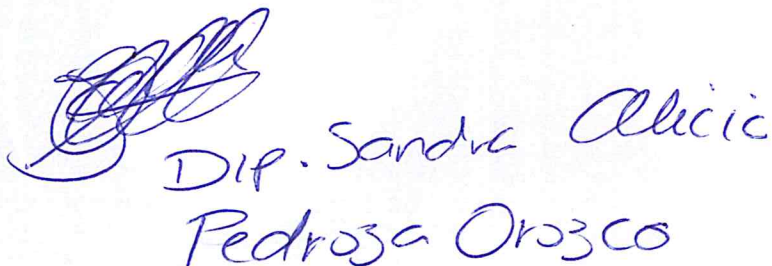 Dip. Sandra Alicia
Pedroza Orozco